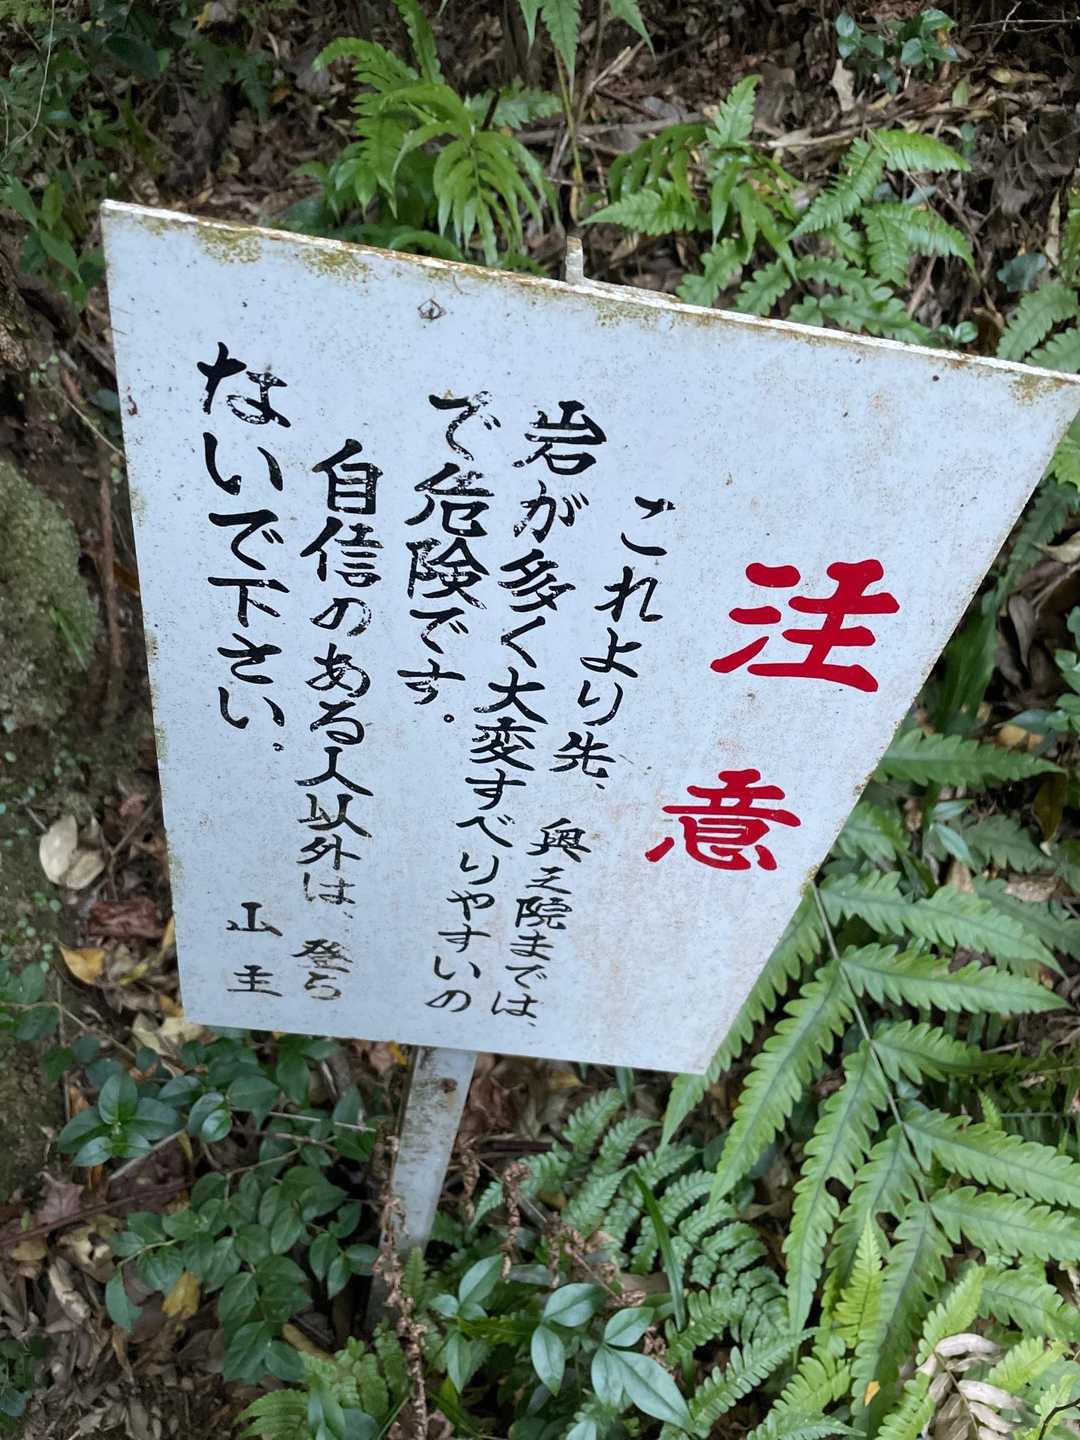 注意
これより先、奥之院までは、
岩が多く大変すべりやすいの
で危険です。
自信のある人以外は、登ら
ないで下さい。
山主